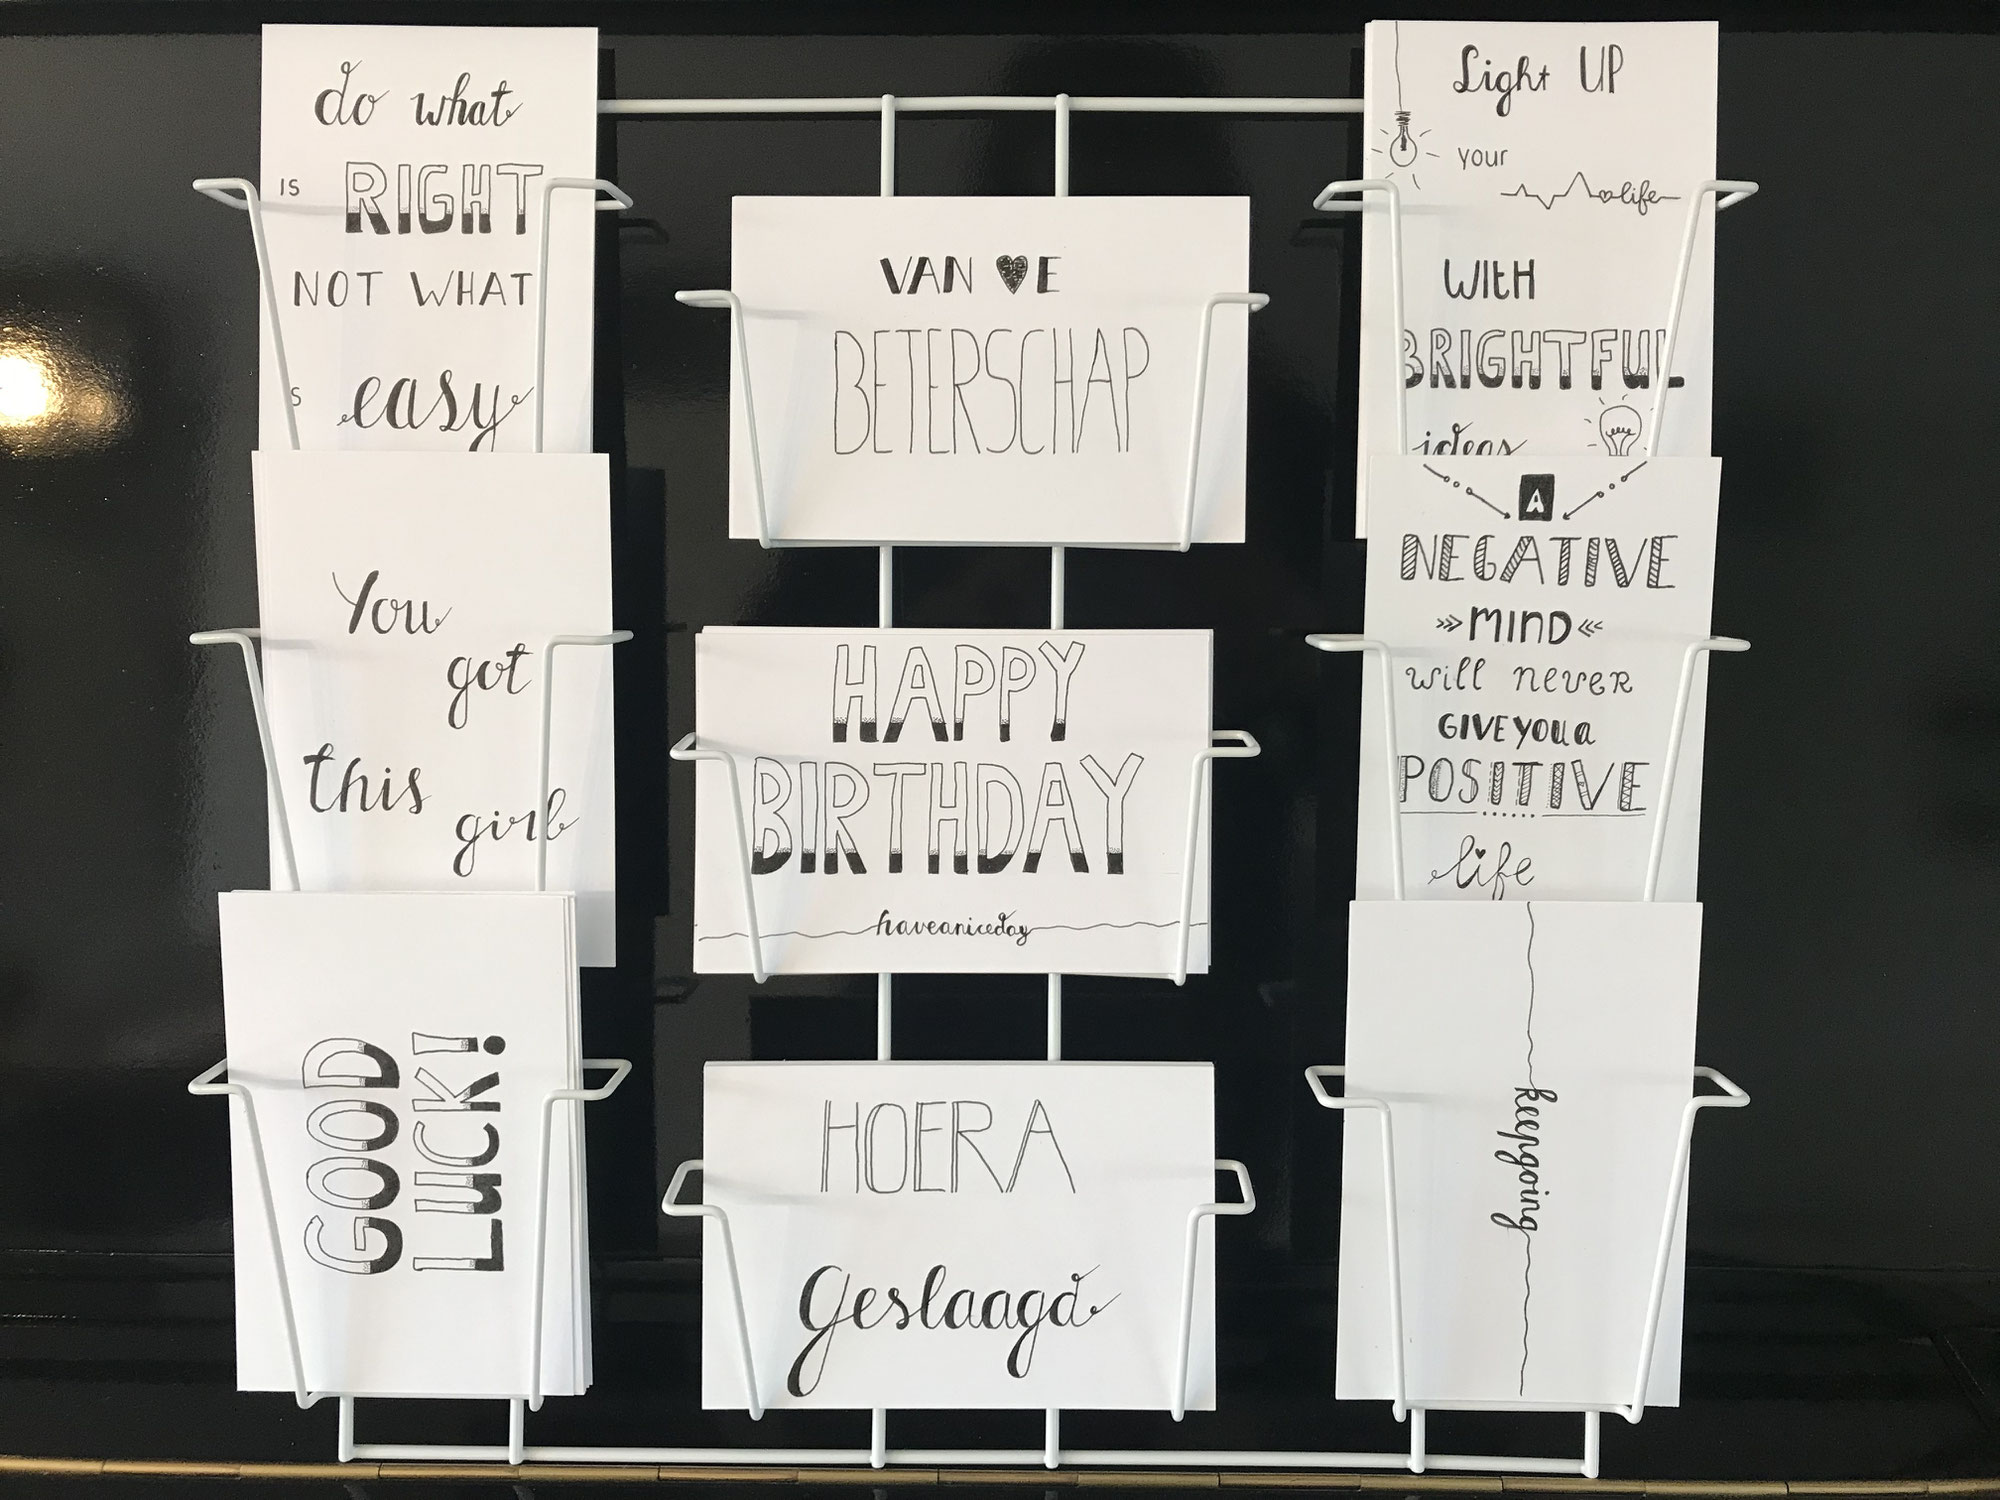 do what
IS RIGHT
NOT WHAT
IS easy
You
got
this
girl
GOOD
LUCK!
VAN ♥E
BETERSCHAP
HAPPY
BIRTHDAY
haveaniceday
HOERA
geslaagd
Light UP
your
life
WItH
BRIGHTFUL
ideas
A
NEGATIVE
»MIND«
will never
GIVE YOU a
POSITIVE
life
keepgoing